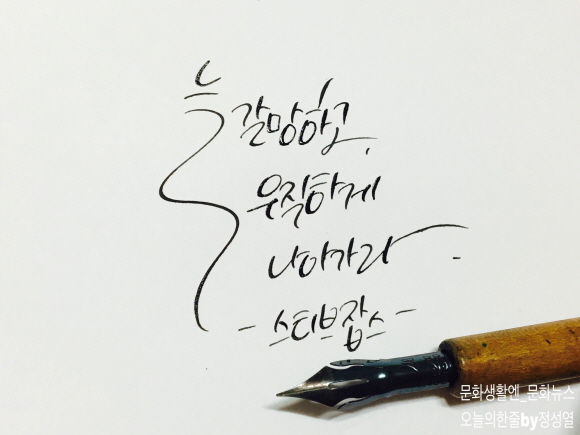 늘 갈망하고,
우직하게
나아가라.
- 스티브잡스 -
문화생활엔_문화뉴스
오늘의한줄by정성열